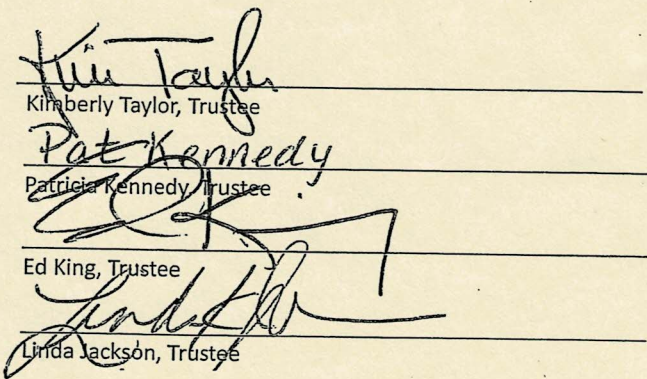 Kim Taylor
Kimberly Taylor, Trustee
Pat Kennedy
Patricia Kennedy, Trustee
Ed King
Ed King, Trustee
Linda
Linda Jackson, Trustee